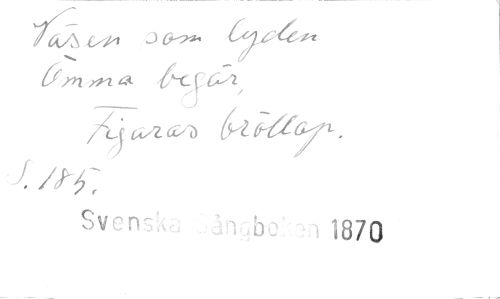 Väsen som lyden
Ömma begär,
Figaros bröllop.
S. 185.
Svenska Sångboken 1870